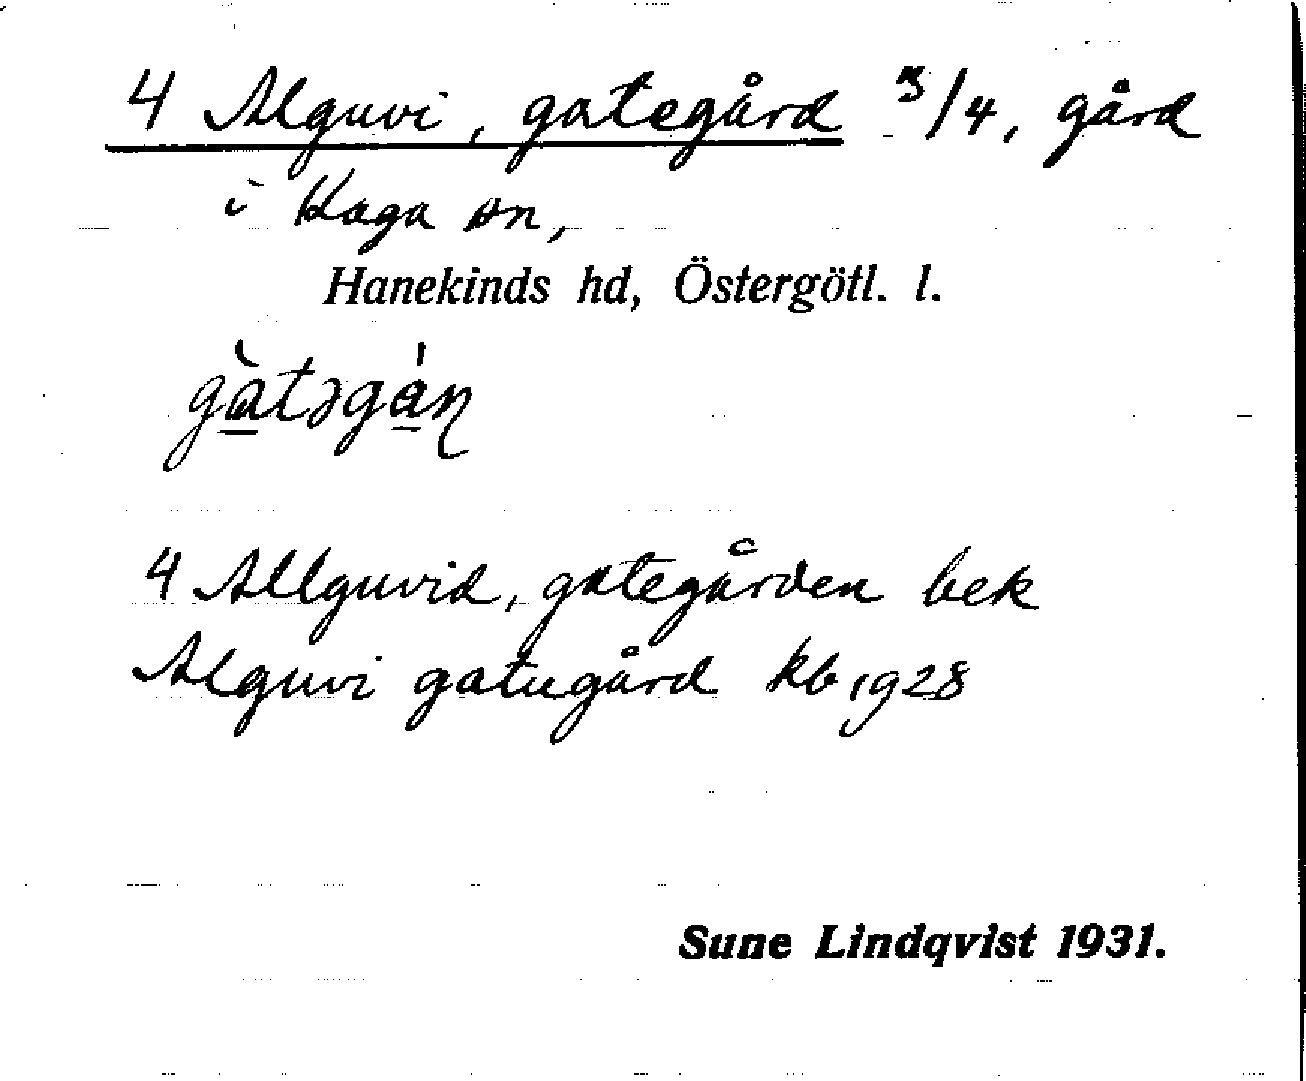 4 Alguvi, gategård 3/4, gård
i Kaga sn,
Hanekinds hd, Östergötl. l.
gàtəgáɳ
4 Allguvid, gategården bek
Alguvi gatugård kb 1928
Sune Lindqvist 1931.